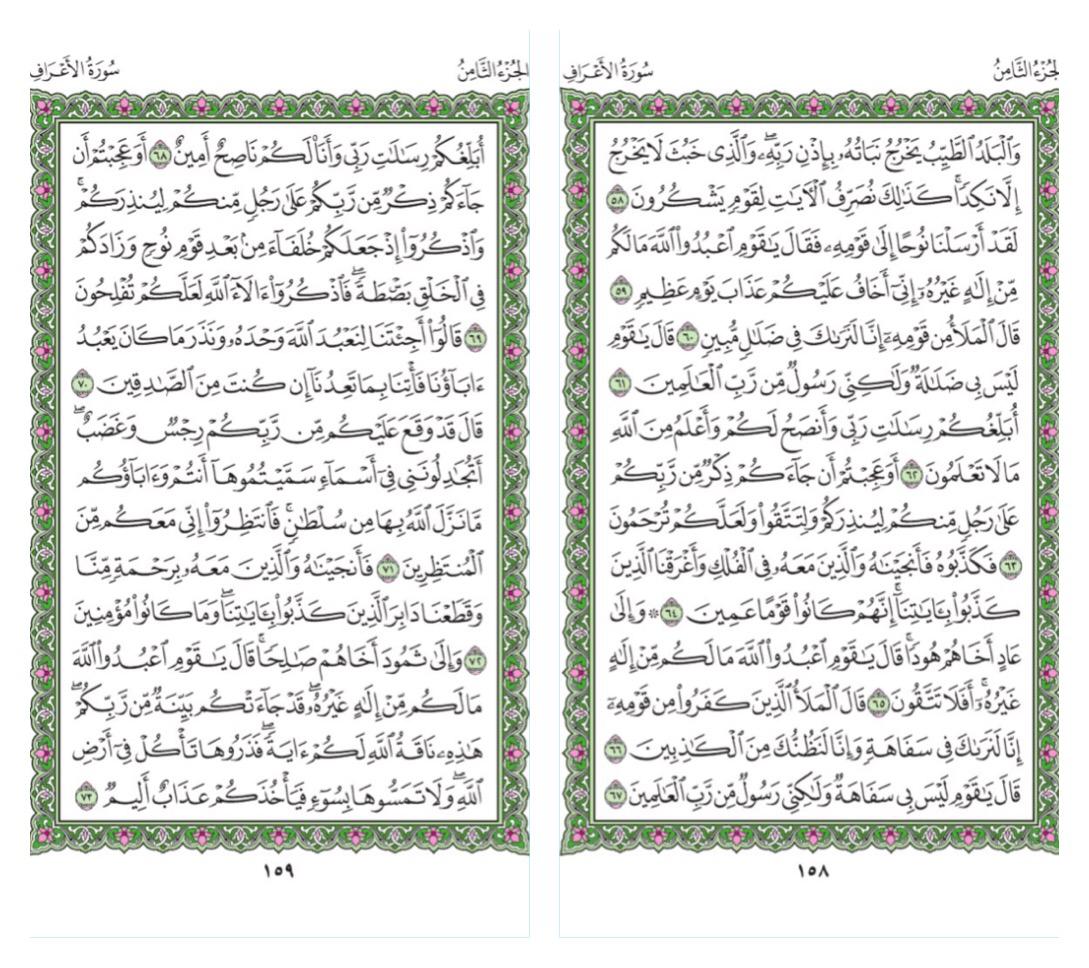 الجُزْءُ الثَّامِنُ
سُورَةُ الأَعْرَافِ
وَٱلْبَلَدُ ٱلطَّيِّبُ يَخْرُجُ نَبَاتُهُۥ بِإِذْنِ رَبِّهِۦۖ وَٱلَّذِى خَبُثَ لَا يَخْرُجُ
إِلَّا نَكِدًاۚ كَذَٰلِكَ نُصَرِّفُ ٱلْأٓيَٰتِ لِقَوْمٍ يَشْكُرُونَ ٥٨
لَقَدْ أَرْسَلْنَا نُوحًا إِلَىٰ قَوْمِهِۦ فَقَالَ يَٰقَوْمِ ٱعْبُدُوا۟ ٱللَّهَ مَا لَكُم
مِّنْ إِلَٰهٍ غَيْرُهُۥٓ إِنِّىٓ أَخَافُ عَلَيْكُمْ عَذَابَ يَوْمٍ عَظِيمٍ ٥٩
قَالَ ٱلْمَلَأُ مِن قَوْمِهِۦٓ إِنَّا لَنَرَىٰكَ فِى ضَلَٰلٍ مُّبِينٍ ٦٠ قَالَ يَٰقَوْمِ
لَيْسَ بِى ضَلَٰلَةٌ وَلَٰكِنِّى رَسُولٌ مِّن رَّبِّ ٱلْعَٰلَمِينَ ٦١
أُبَلِّغُكُمْ رِسَٰلَٰتِ رَبِّى وَأَنصَحُ لَكُمْ وَأَعْلَمُ مِنَ ٱللَّهِ
مَا لَا تَعْلَمُونَ ٦٢ أَوَعَجِبْتُمْ أَن جَآءَكُمْ ذِكْرٌ مِّن رَّبِّكُمْ
عَلَىٰ رَجُلٍ مِّنكُمْ لِيُنذِرَكُمْ وَلِتَتَّقُوا۟ وَلَعَلَّكُمْ تُرْحَمُونَ
٦٣ فَكَذَّبُوهُ فَأَنجَيْنَٰهُ وَٱلَّذِينَ مَعَهُۥ فِى ٱلْفُلْكِ وَأَغْرَقْنَا ٱلَّذِينَ
كَذَّبُوا۟ بِـَٔايَٰتِنَآۚ إِنَّهُمْ كَانُوا۟ قَوْمًا عَمِينَ ٦٤ ۞ وَإِلَىٰ
عَادٍ أَخَاهُمْ هُودًاۚ قَالَ يَٰقَوْمِ ٱعْبُدُوا۟ ٱللَّهَ مَا لَكُم مِّنْ إِلَٰهٍ
غَيْرُهُۥٓۚ أَفَلَا تَتَّقُونَ ٦٥ قَالَ ٱلْمَلَأُ ٱلَّذِينَ كَفَرُوا۟ مِن قَوْمِهِۦٓ
إِنَّا لَنَرَىٰكَ فِى سَفَاهَةٍ وَإِنَّا لَنَظُنُّكَ مِنَ ٱلْكَٰذِبِينَ ٦٦
قَالَ يَٰقَوْمِ لَيْسَ بِى سَفَاهَةٌ وَلَٰكِنِّى رَسُولٌ مِّن رَّبِّ ٱلْعَٰلَمِينَ ٦٧
١٥٨
الجُزْءُ الثَّامِنُ
سُورَةُ الأَعْرَافِ
أُبَلِّغُكُمْ رِسَٰلَٰتِ رَبِّى وَأَنَا۠ لَكُمْ نَاصِحٌ أَمِينٌ ٦٨ أَوَعَجِبْتُمْ أَن
جَآءَكُمْ ذِكْرٌ مِّن رَّبِّكُمْ عَلَىٰ رَجُلٍ مِّنكُمْ لِيُنذِرَكُمْۚ
وَٱذْكُرُوٓا۟ إِذْ جَعَلَكُمْ خُلَفَآءَ مِنۢ بَعْدِ قَوْمِ نُوحٍ وَزَادَكُمْ
فِى ٱلْخَلْقِ بَصْۜطَةًۖ فَٱذْكُرُوٓا۟ ءَالَآءَ ٱللَّهِ لَعَلَّكُمْ تُفْلِحُونَ
٦٩ قَالُوٓا۟ أَجِئْتَنَا لِنَعْبُدَ ٱللَّهَ وَحْدَهُۥ وَنَذَرَ مَا كَانَ يَعْبُدُ
ءَابَآؤُنَا فَأْتِنَا بِمَا تَعِدُنَآ إِن كُنتَ مِنَ ٱلصَّٰدِقِينَ ٧٠
قَالَ قَدْ وَقَعَ عَلَيْكُم مِّن رَّبِّكُمْ رِجْسٌ وَغَضَبٌۖ
أَتُجَٰدِلُونَنِى فِىٓ أَسْمَآءٍ سَمَّيْتُمُوهَآ أَنتُمْ وَءَابَآؤُكُم
مَّا نَزَّلَ ٱللَّهُ بِهَا مِن سُلْطَٰنٍۚ فَٱنتَظِرُوٓا۟ إِنِّى مَعَكُم مِّنَ
ٱلْمُنتَظِرِينَ ٧١ فَأَنجَيْنَٰهُ وَٱلَّذِينَ مَعَهُۥ بِرَحْمَةٍ مِّنَّا
وَقَطَعْنَا دَابِرَ ٱلَّذِينَ كَذَّبُوا۟ بِـَٔايَٰتِنَاۖ وَمَا كَانُوا۟ مُؤْمِنِينَ
٧٢ وَإِلَىٰ ثَمُودَ أَخَاهُمْ صَٰلِحًاۚ قَالَ يَٰقَوْمِ ٱعْبُدُوا۟ ٱللَّهَ
مَا لَكُم مِّنْ إِلَٰهٍ غَيْرُهُۥۖ قَدْ جَآءَتْكُم بَيِّنَةٌ مِّن رَّبِّكُمْۖ
هَٰذِهِۦ نَاقَةُ ٱللَّهِ لَكُمْ ءَايَةًۖ فَذَرُوهَا تَأْكُلْ فِىٓ أَرْضِ
ٱللَّهِۖ وَلَا تَمَسُّوهَا بِسُوٓءٍ فَيَأْخُذَكُمْ عَذَابٌ أَلِيمٌ ٧٣
١٥٩